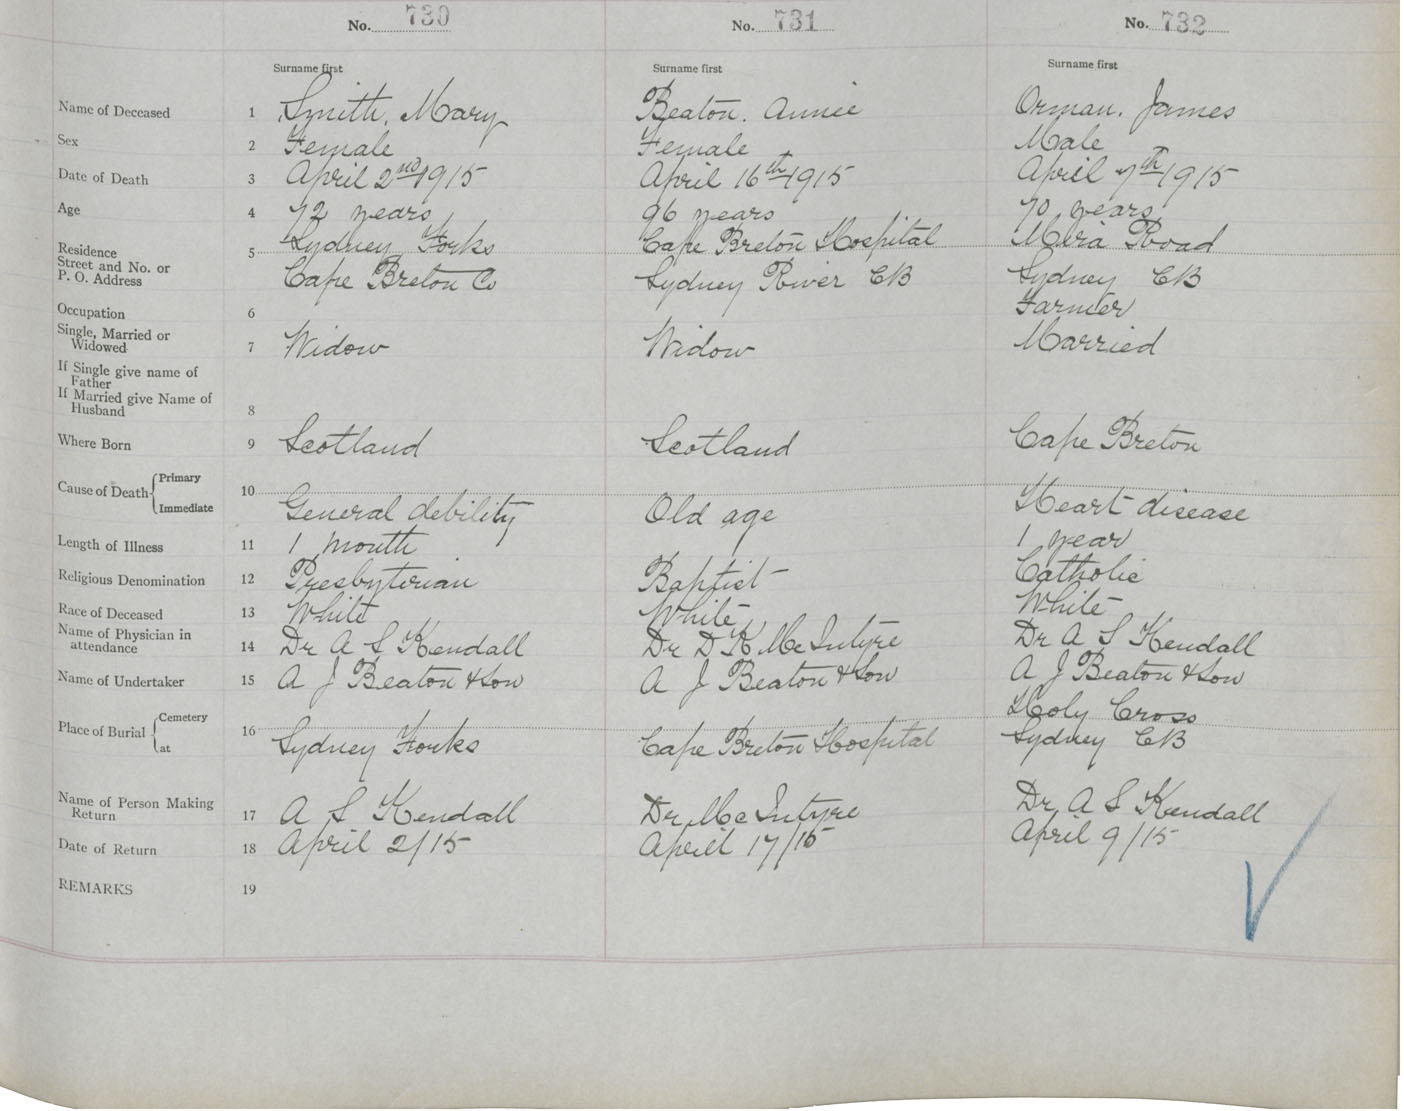 No. 730 No. 731 No. 732
Surname first Surname first Surname first
Name of Deceased 1 Smith, Mary Beaton. Annie Orman. James
Sex 2 Female Female Male
Date of Death 3 April 2nd 1915 April 16th 1915 April 7th 1915
Age 4 72 years 96 years 70 years
Residence 5 Sydney Forks Cape Breton Hospital Mira Road
Street and No. or
P. O. Address Cape Breton Co Sydney River CB Sydney CB
Occupation 6 Farmer
Single, Married or
Widowed 7 Widow Widow Married
If Single give name of
Father
If Married give Name of
Husband 8
Where Born 9 Scotland Scotland Cape Breton
Cause of Death Primary 10
Immediate General debility Old age Heart disease
Length of Illness 11 1 month 1 year
Religious Denomination 12 Presbyterian Baptist Catholic
Race of Deceased 13 White White White
Name of Physician in
attendance 14 Dr A S Kendall Dr D K McIntyre Dr A S Kendall
Name of Undertaker 15 A J Beaton & Son A J Beaton & Son A J Beaton & Son
Place of Burial Cemetery 16 Holy Cross
at Sydney Forks Cape Breton Hospital Sydney CB
Name of Person Making
Return 17 A S Kendall Dr McIntyre Dr A S Kendall
Date of Return 18 April 2/15 April 17/15 April 9/15
REMARKS 19